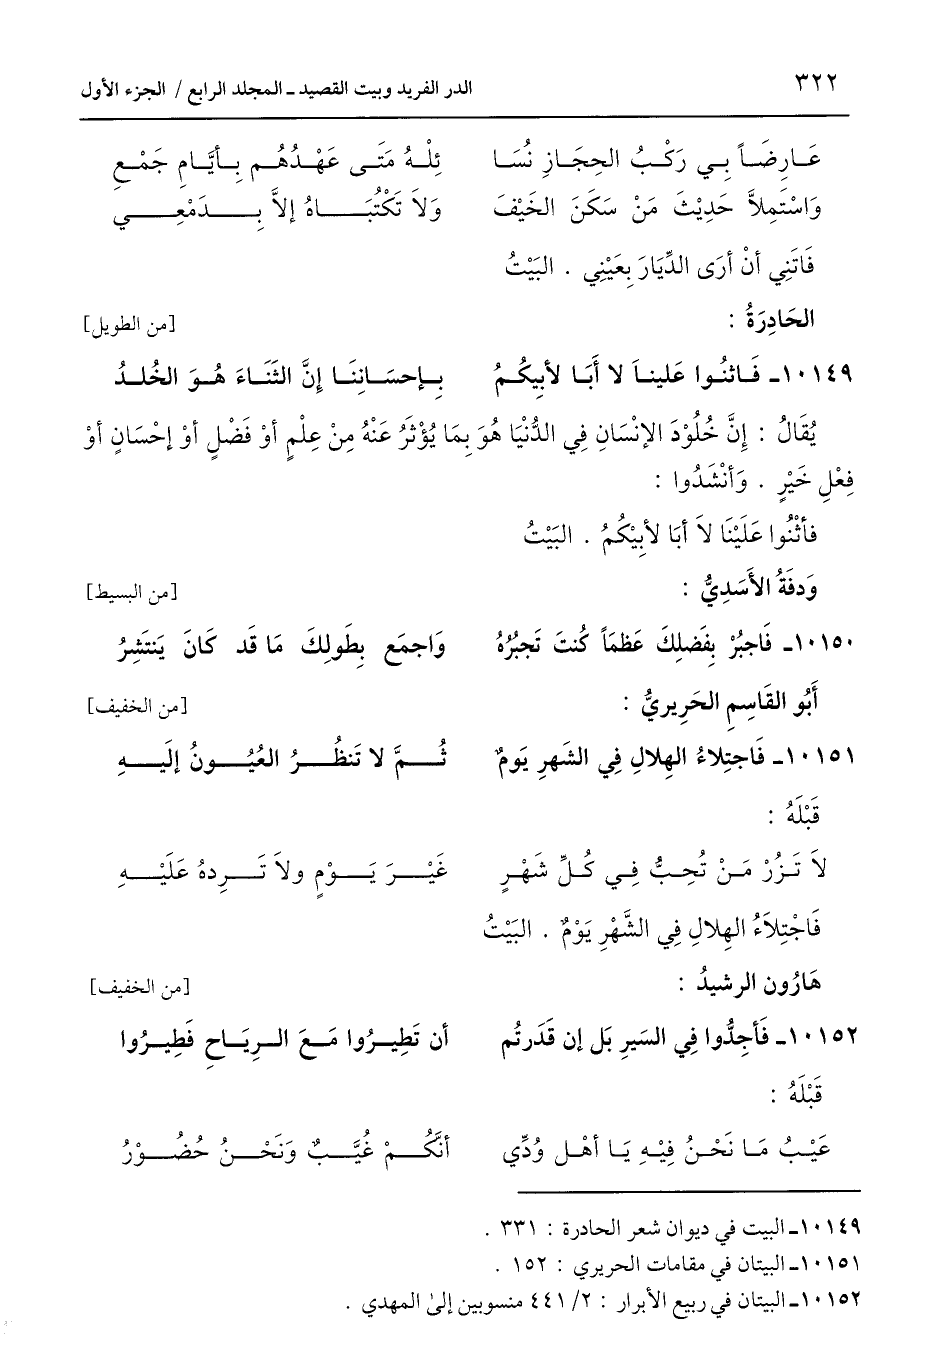 ٣٢٢ الدر الفريد وبيت القصيد ـ المجلد الرابع / الجزء الأول
عَارِضَاً بِي رَكْبُ الحِجَازِ نُسَا ئِلْهُ مَتَى عَهْدُهُمِ بِأَيَّامِ جَمْعِ
وَاسْتَمِلاَّ حَدِيْثَ مَنْ سَكَنَ الخَيْفَ وَلاَ تَكْتُبَاهُ إلاَّ بِدَمْعِي
فَاتَنِي أنْ أرَى الدِّيَارَ بِعَيْنِي . البَيْتُ
الحَادِرَةُ : [من الطويل]
١٠١٤٩ـ فَاثنُوا عَلَيناَ لا أَبَا لأبِيكُمُ بِإحسَانِنَا إنَّ الثَّنَاءَ هُوَ الخُلدُ
يُقَالُ : إنَّ خُلُوْدَ الإنْسَانِ فِي الدُّنْيَا هُوَ بِمَا يُؤْثَرُ عَنْهُ مِنْ عِلْمٍ أوْ فَضْلٍ أوْ إحْسَانٍ أوْ
فِعْلِ خَيْرٍ . وَأنْشَدُوا :
فأثْنُوا عَلَيْنَا لاَ أبَا لأبِيْكُمُ . البَيْتُ
وَدفَةُ الأَسَدِيُّ : [من البسيط]
١٠١٥٠ـ فَاجبُرْ بِفَضلِكَ عَظمَاً كُنتَ تَجبُرُهُ وَاجمَع بِطَولِكَ مَا قَد كَانَ يَنتَشِرُ
أَبُو القَاسِمِ الحَرِيريُّ : [من الخفيف]
١٠١٥١ـ فَاجتِلاءُ الهِلالِ فِي الشَهرِ يَومٌ ثُمَّ لا تَنظُرُ العُيُونُ إلَيهِ
قَبْلَهُ :
لاَ تَزُرْ مَنْ تُحِبُّ فِي كُلِّ شَهْرٍ غَيْرَ يَوْمٍ ولاَ تَرِدهُ عَلَيْهِ
فَاجْتِلاَءُ الهِلالِ فِي الشَّهْرِ يَوْمٌ . البَيْتُ
هَارُون الرشيدُ : [من الخفيف]
١٠١٥٢ـ فَأجِدُّوا فِي السَيرِ بَل إن قَدَرتُم أن تَطِيرُوا مَعَ الرِيَاحِ فَطِيرُوا
قَبْلَهُ :
عَيْبُ مَا نَحْنُ فِيْهِ يَا أهْل وُدِّي أنَّكُمْ غُيَّبٌ وَنَحْنُ حُضُوْرُ
١٠١٤٩ـ البيت في ديوان شعر الحادرة : ٣٣١ .
١٠١٥١ـ البيتان في مقامات الحريري : ١٥٢ .
١٠١٥٢ـ البيتان في ربيع الأبرار : ٢/ ٤٤١ منسوبين إلى المهدي .